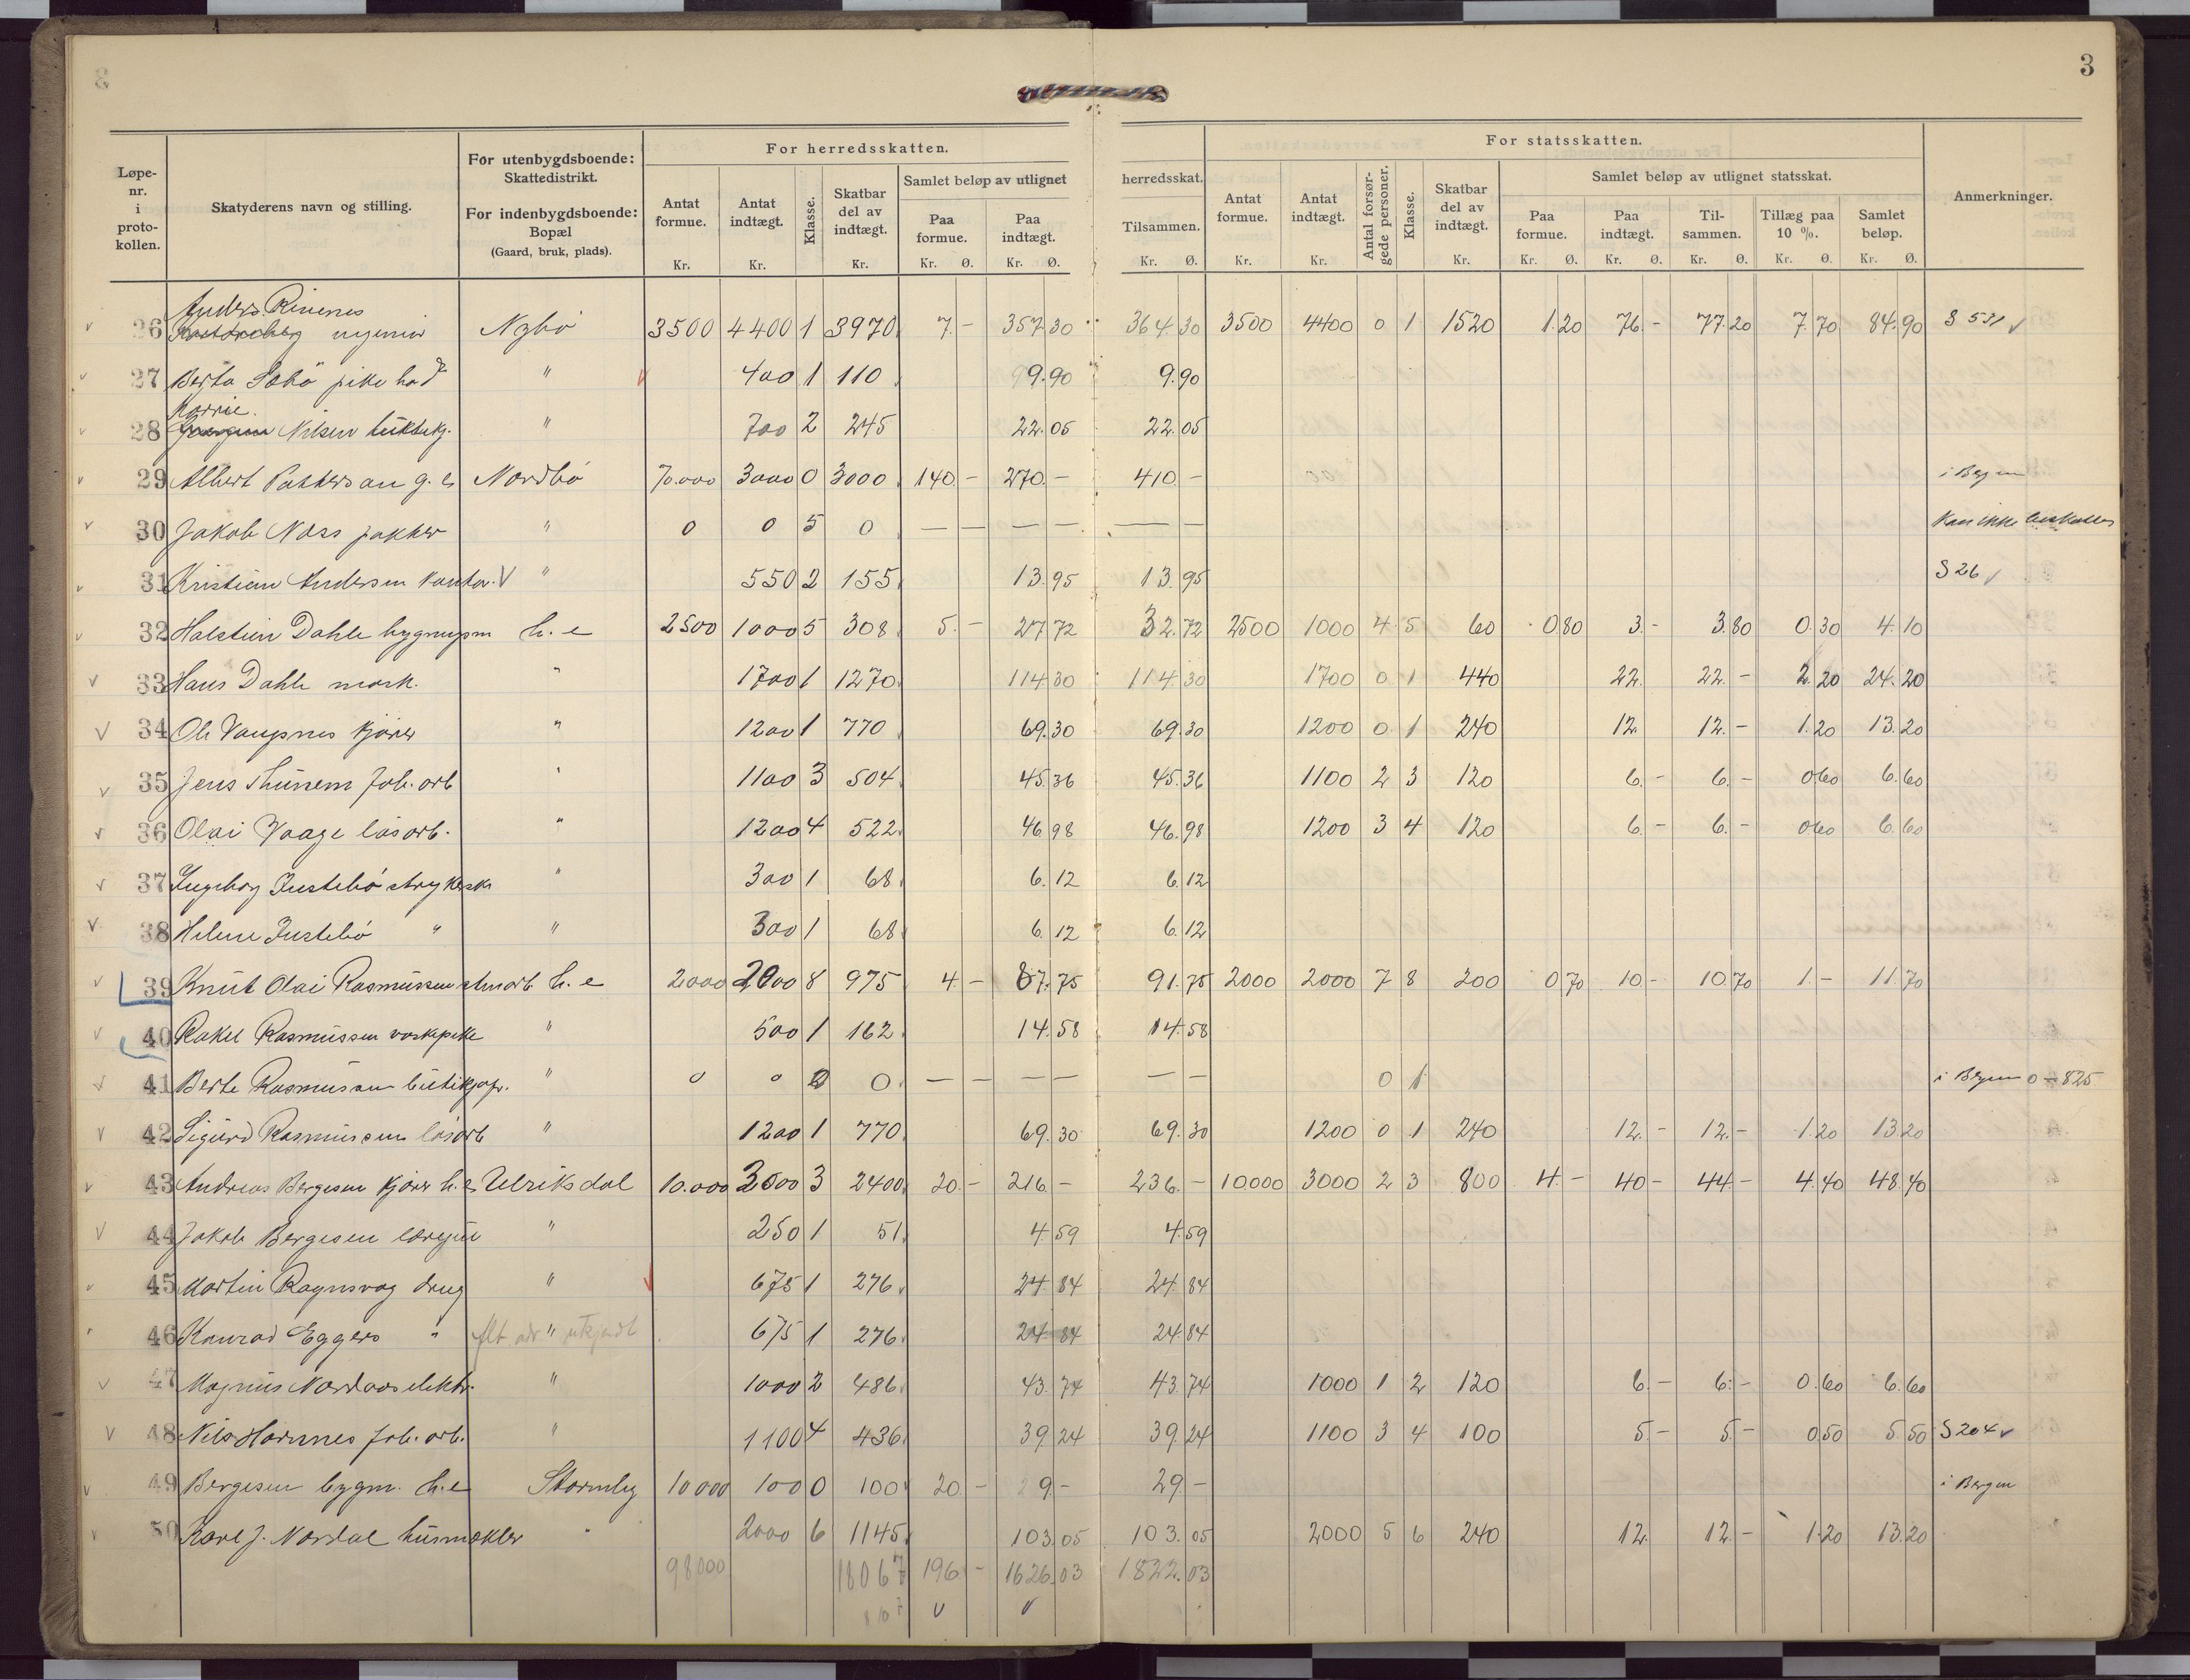 3
Løpe-nr. i proto-kollen.
Skatyderens navn og stilling.
For utenbygdsboende: Skattedistrikt.
For indenbygdsboende: Bopæl (Gaard, bruk, plads).
For herredsskatten.
Antat formue. Kr.
Antat indtægt. Kr.
Klasse.
Skatbar del av indtægt. Kr.
Samlet beløp av utlignet herredsskat.
Paa formue. Kr. Ø.
Paa indtægt. Kr. Ø.
Tilsammen. Kr. Ø.
For statsskatten.
Antat formue. Kr.
Antat indtægt. Kr.
Antal forsør-gede personer.
Klasse.
Skatbar del av indtægt. Kr.
Samlet beløp av utlignet statsskat.
Paa formue. Kr. Ø.
Paa indtægt. Kr. Ø.
Til-sammen. Kr. Ø.
Tillæg paa 10 %. Kr. Ø.
Samlet beløp. Kr. Ø.
Anmerkninger.
Anders Rinenes
26 Nybö 3500 4400 1 3970 7 - 357.30 364.30 3500 4400 0 1 1520 1.20 76.- 77.20 7.70 84.90 S 531
27 Berta Sebö pike " 400 1 110 9.90 9.90
28 Nilsen " 700 2 245 22.05 22.05
29 Albert Pettersen g.e. Nordbö 70.000 3000 0 3000 140 - 270 - 410 - i Bergen
30 Jakob Næss " 0 0 5 0 — — — — — — Kan ikke beskattes
31 Kristian Andersen kontor. " 550 2 155 13.95 13.95 S 26
32 Halstein Dahle h. e 2500 1000 5 308 5.- 27.72 32.72 2500 1000 4 5 60 0.80 3.- 3.80 0.30 4.10
33 Hans Dahle mask. " 1700 1 1270 114.30 114.30 1700 0 1 440 22. 22.- 2.20 24.20
34 Ole kjörer " 1200 1 770 69.30 69.30 1200 0 1 240 12. 12.- 1.20 13.20
35 Jens Thunem fab. arb " 1100 3 504 45.36 45.36 1100 2 3 120 6.- 6.- 0.60 6.60
36 Olai Vaage lösarb. " 1200 4 522 46.98 46.98 1200 3 4 120 6.- 6.- 0.60 6.60
37 Ingeborg Justebö strykersk. " 300 1 68 6.12 6.12
38 Helene Justebö " " 300 1 68 6.12 6.12
39 Knut Olai Rasmussen h. e 2000 2000 8 975 4 - 87.75 91.75 2000 2000 7 8 200 0.70 10.- 10.70 1.- 11.70
40 Rakel Rasmussen vaskepike " 500 1 162 14.58 14.58
41 Berte Rasmussen " 0 0 0 0 — — — — — — 0 1 i Bergen 0 - 825
42 Sigurd Rasmussen lösarb " 1200 1 770 69.30 69.30 1200 0 1 240 12.- 12.- 1.20 13.20
43 Andreas Bergesen kjörer h. e Ulriksdal 10.000 3000 3 2400 20.- 216.- 236.- 10000 3000 2 3 800 4.- 40.- 44.- 4.40 48.40
44 Jakob Bergesen " 250 1 51 4.59 4.59
45 Martin Ragnsvag dreng " 675 1 276 24.84 24.84
46 Konrad Eggers " " 675 1 276 24.84 24.84
47 Magnus Nordaas elektr. " 1000 2 486 43.74 43.74 1000 1 2 120 6.- 6.- 0.60 6.60
48 Nils Hamnes fab. arb. " 1100 4 436 39.24 39.24 1100 3 4 100 5.- 5.- 0.50 5.50 S 204
49 Bergesen bygm. h. e Stormly 10000 100 0 100 20 - 9 - 29 - i Bergen
50 Karl J. Nordal husmækler " 2000 6 1145 103.05 103.05 2000 5 6 240 12. 12.- 1.20 13.20
98000 18067 196 - 1626.03 1822.03